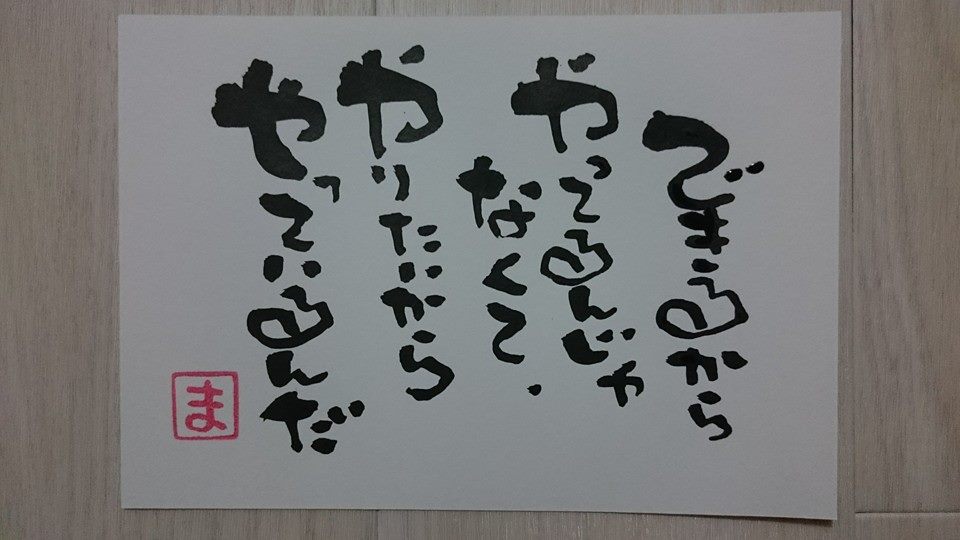 できるから
やってるんじゃ
なくて.
やりたいから
やっているんだ
ま